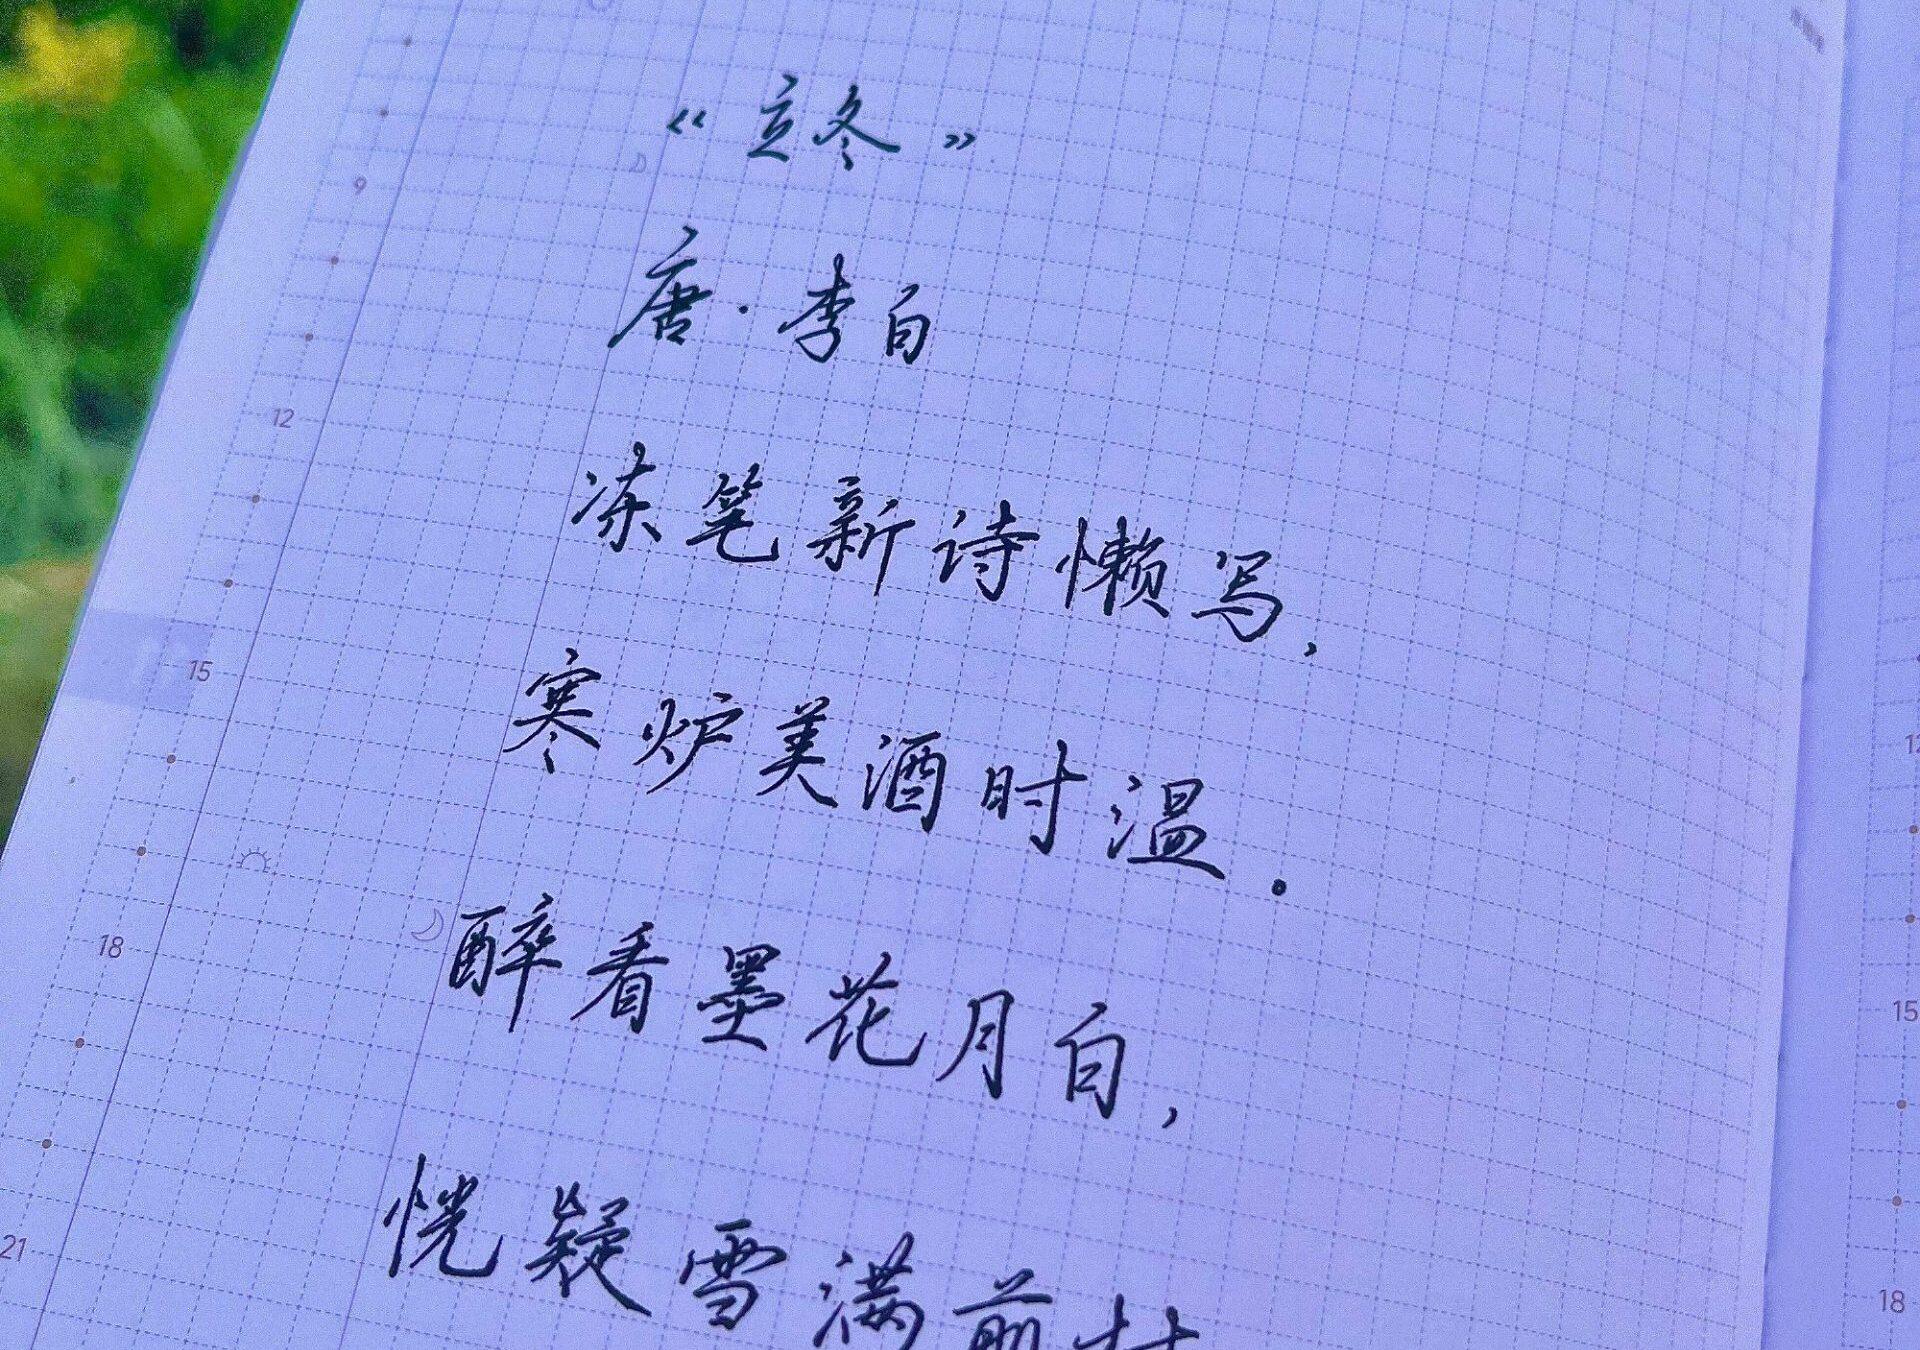 《立冬》
唐·李白
冻笔新诗懒写，
寒炉美酒时温。
醉看墨花月白，
恍疑雪满前村
9
12
15
18
21
12
15
18